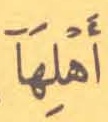 أَهْلِهَآ